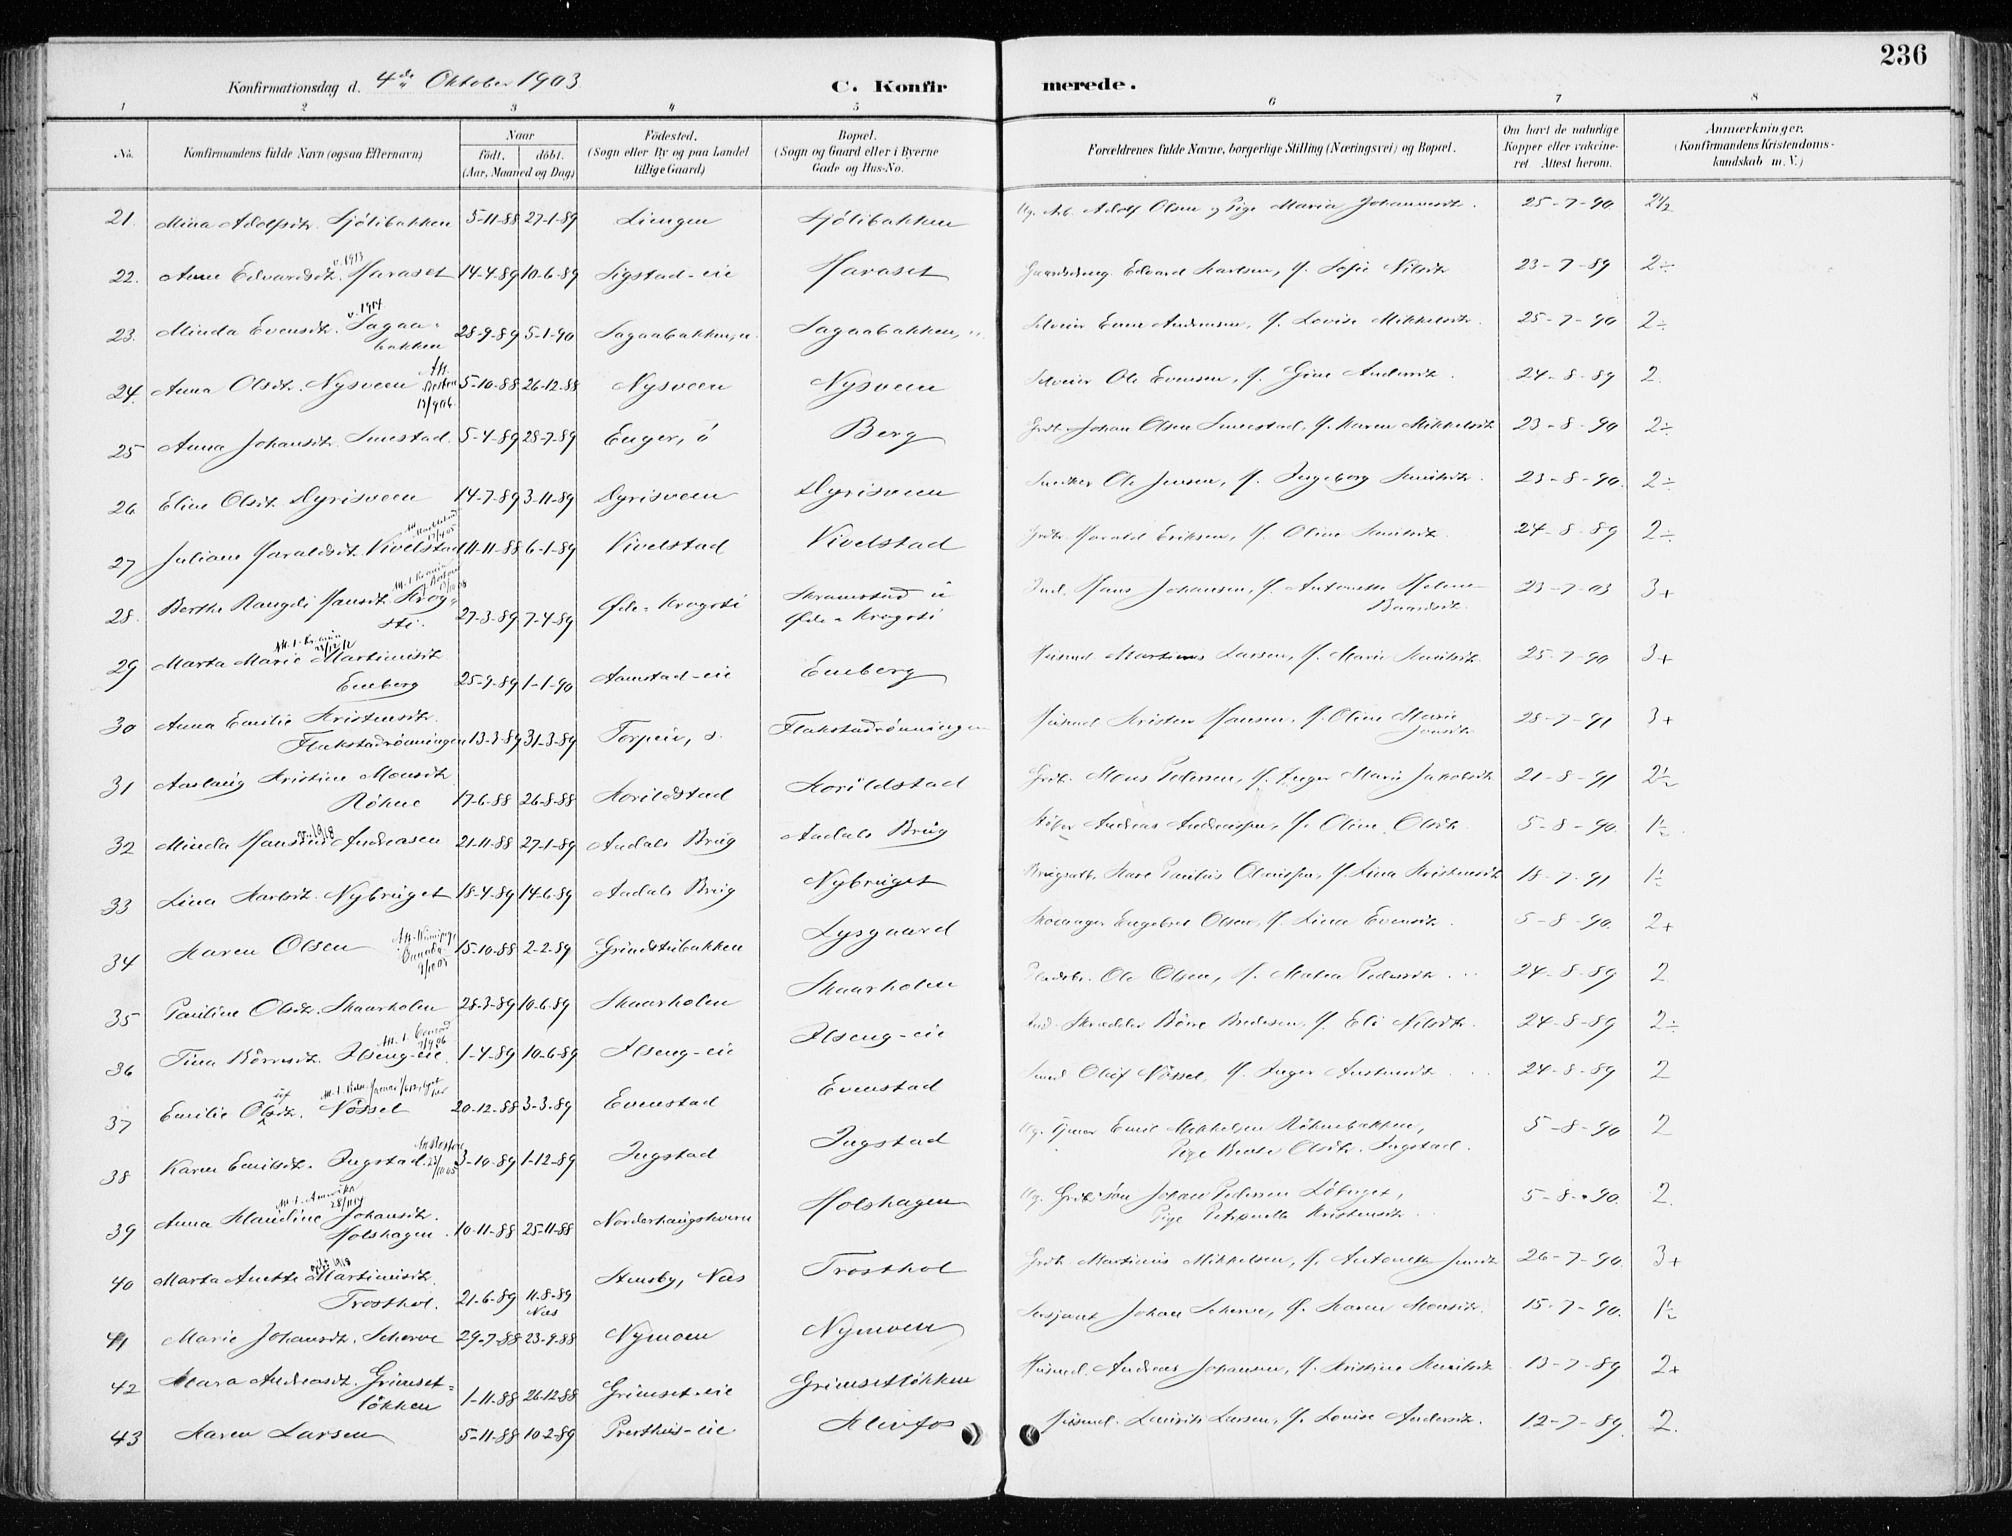 236
Konfirmationsdag d. 4de Oktober 1903
C. Konfirmerede.
1 2 3 4 5 6 7 8
No. Konfirmandens fulde Navn (ogsaa Efternavn) Naar födt. döbt. (Aar, Maaned og Dag) Födested. (Sogn eller By og paa Landet tillige Gaard) Bopæl. (Sogn og Gaard eller i Byerne Gade og Hus-No. Forældrenes fulde Navne, borgerlige Stilling (Næringsvei) og Bopæl. Om havt de naturlige Kopper eller vakcineret Attest herom. Anmærkninger. (Konfirmandens Kristendomskundskab m.V.)
21. Mina Adolfsdt. Sjölibakken 5-11-88 27-1-89 Liengen Sjölibakken Ug. Arb. Adolf Olsen og Pige Maria Johannesdt. 25-7-90 2½
22. Anne Edvardsdt. Haraset v. 1913 14-4-89 10-6-89 Sigstad-eie Haraset Gaardsdreng Edvard Karlsen, H. Sofie Nilsdt. 23-7-89 2÷
23. Minda Evensdt. Sagaabakken v. 1914 28-9-89 5-1-90 Sagaabakken, Sagaabakken, Selveier Even Andersen, H. Lovise Mikkelsdt. 25-7-90 2÷
24. Anna Olsdt. Nysveen 5-10-88 26-12-88 Nysveen Nysveen Selveier Ole Evensen, H. Gine Andersdt. 24-8-89 2.
25 Anna Johansdt. Smestad 5-4-89 28-7-89 Enger, ö Berg Grdb. Johan Olsen Smestad, H. Karen Mikkelsdt. 23-8-90 2÷
26 Eline Olsdt. Dyrisveen 14-7-89 3-11-89 Dyrisveen Dyrisveen Snedker Ole Jensen, H. Ingeborg 23-8-90. 2÷
27 Juliane Haraldsdt. Kivelstad 11-11-88 6-1-89 Kivelstad Kivelstad Grdbr. Harald Eriksen, H. Oline 24-8-89 2÷
28. Berthe Rangdi Hansdt. Krogsti. 27-3-89 7-4-89 Öde-Krogsti Skramstad Öde-Krogsti Ind. Hans Johansen, H. Antonette Helene Baardsdt. 23-7-03 3+
29 Marta Marie Martinusdt. Eneberg 25-9-89 1-1-90 Aamstad-eie Eneberg Husmd. Martinus Larsen, H. Marie 25-7-90 3+
30 Anna Emilie Kristensdt. Flakstadrönningen 13-3-89 31-3-89 Torpen, s. Flakstadrönningen Husmd Kristen Hansen, H. Oline Marie Jonsdt. 28-7-91 3+
31 Aaslaug Kristine Monsdt. Röhne 17-6-88 26-8-88 Horildstad Horildstad Grdb. Mons Pedersen, H. Inger Marie Jakobsdt. 21-8-91 2½
32 Minda Hansine Andreasen 21-11-88 27-1-89 Aadals Brug Aadals Brug Andreas H. Oline Olsdt. 5-8-90. 1½
33 Lina Karlsdt. Nybruget 18-4-89 14-6-89 Aadals Brug Nybruget Karl Paulus H. Lina Kristensdt. 18-7-91 1½
34 Karen Olsen Att. Winnipeg Canada 15-10-88 2-2-89 Grindstubakken Lysgaard Skomager Engebret Olsen, H. Lina Evensdt. 5-8-90. 2+
35 Pauline Olsdt. Skaarholen 28-3-89 10-6-89 Skaarholen Skaarholen Ole Olsen, H. Matea Pedersdt. 24-8-89 2
36 Tina Börresdt. Ilseng-eie 1-4-89 10-6-89 Ilseng-eie Ilseng-eie Ind. Skrædder Börre Bredesen, H. Eli Nilsdt. 24-8-89 2÷
37 Emilie Olufsdt. Nössel 20-12-88 3-3-89 Evenstad Evenstad Smed Oluf Nössel, H. Inger 24-8-89 2
38 Karen Emilsdt. Ingstad 3-10-89 1-12-89 Ingstad Ingstad Ug. Emil Mikkelsen Röhnebakken, Pige Olsdt. Ingstad. 5-8-90 2
39 Anna Klaudine Johansdt. Holshagen Att. t. Amerika 10-11-88 25-11-88 Norderhaugskvern Holshagen Ug. Grdbrsön Johan Pedersen Pige Petronelle Kristensdt. 5-8-90. 2
40 Marta Anette Martinusdt. Trosthol. 21-6-89 11-8-89 Næs Stensby, Næs Trosthol Grdb. Martinus Mikkelsen, H. Antonette 26-7-90. 3+
41 Marie Johansdt. Scherve 29-7-88 23-9-88 Nymoen Nymoen Sersjant Johan Scherve, H. Karen Monsdt. 15-7-90. 1½
42 Klara Andreasdt. Grimsetlökken 1-11-88 26-12-88 Grimset-eie Grimsetlökken Husmd. Andreas Johansen, H. Kristine 13-7-89 2+
43 Karen Larsen 5-11-88 10-2-89 Presthus-eie Klevfos Husmd. Laurits Larsen, H. Lovise Andersdt. 12-7-89. 2.